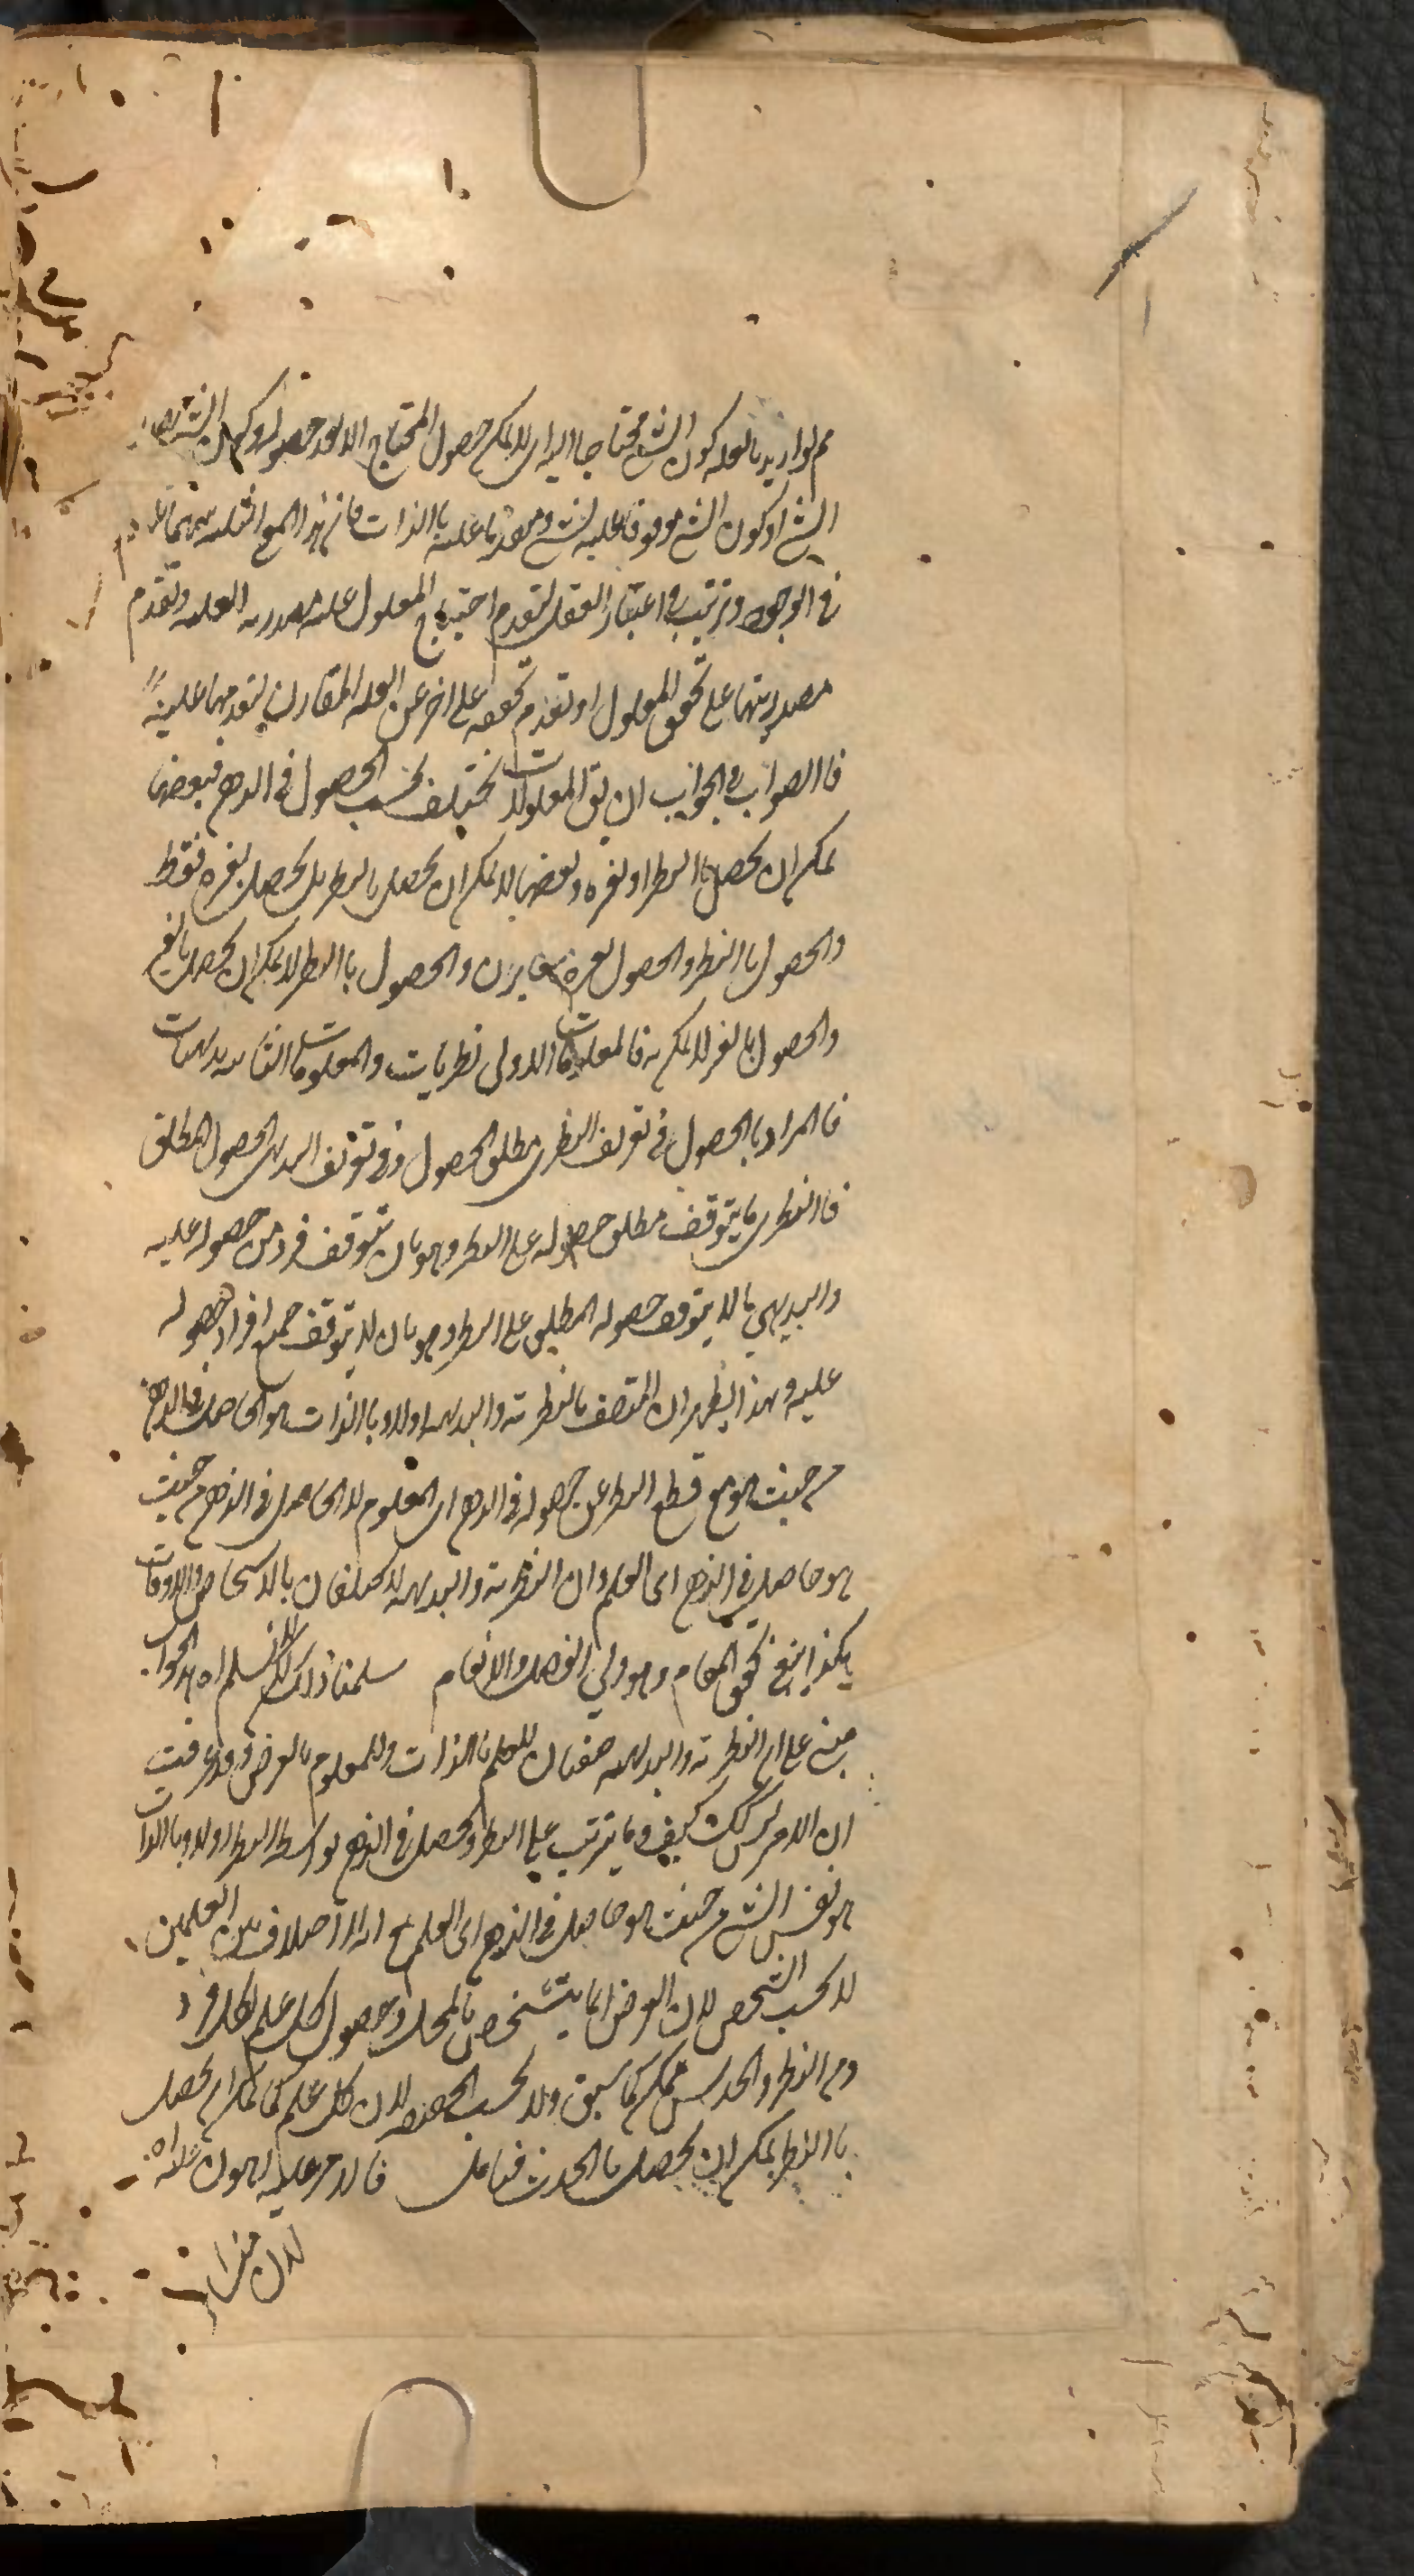 نم لو اريد بالعلة كون الشئ محتاجا اليه اى لا يمكن حصول المحتاج الا بعد حصوله وكون الشئ
الشئ او كون الشئ موقوفا عليه لشئ ومتقدما عليه باالذات فان هذا المع
فى الوجود وترتيب فى اعتبار العقل لتقدم احتياج المعلول على مصدرية العلة وتقدم
مصدريتها على تحقق المعلول او تقدم تحققه على اخر عن العلة المقارن لتقدمها عليه
فاالصواب فى الجواب ان يق المعلومات تختلف بحسب الحصول فى الذهن فبعضها
يمكن ان يحصل باالنظر او بغيره وبعضها لا يمكن ان يحصل بالنظر بل يحصل بغيره فقط
والحصول باالنظر والحصول بغيره متغايران والحصول باالنظر لا يمكن ان يحصل بالغير
والحصول بالغير لا يمكن به فالمعلومات الاولى نظريات والمعلومات الثانية بديهيات
فالمراد بالحصول فى تعريف النظرى مطلق الحصول وفى تعريف البديهى الحصول المطلق
فاالنظرى ما يتوقف مطلق حصوله على النظر وهو بان يتوقف فرد من حصوله عليه
والبديهي ما لا يتوقف حصوله المطلق على النظر وهو بان لا يتوقف جميع افراد حصوله
عليه وبهذا يظهر ان المتصف بالنظرية والبديهية اولا وباالذات هو الحاصل فى الذهن
من حيث هو مع قطع النظر عن حصوله فى الذهن اى المعلوم لا الحاصل فى الذهن من حيث
هو حاصل فى الذهن اى العلم وان النظرية والبديهية لا يختلفان بالاشخاص والاوقات
هكذا ينبغى تحقيق المقام وهو ولي الفضل والانعام سلمنا ذلك لكن لا نسلم اه هذا الجواب
مبنى على ان النظرية والبديهية صفتان للعلم باالذات وللمعلوم بالعرض وقد عرفت
ان الامر ليس كك كيف وما يترتب على النظر ويحصل فى الذهن بواسطة النظر اولا وباالذات
هو نفس الشئ من حيث هو حاصل فى الذهن اى العلم مع انه لا اختلاف بين العلمين
لا بحسب الشخص لان العرض انما يتشخص بالمحل وحصول كل علم لكل فرد
من النظر والحدس ممكن كما سبق ولا بحسب الحقيقة لان كل علم كما يمكن ان يحصل
باالنظر يمكن ان يحصل باالحدث فتامل فالامر عليه اهون
لان